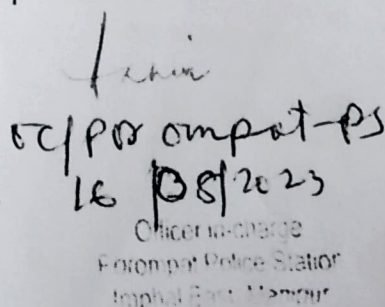 OC/Porompat-PS
16/08/2023
Officer in-charge
Porompat Police Station
Imphal East Manipur